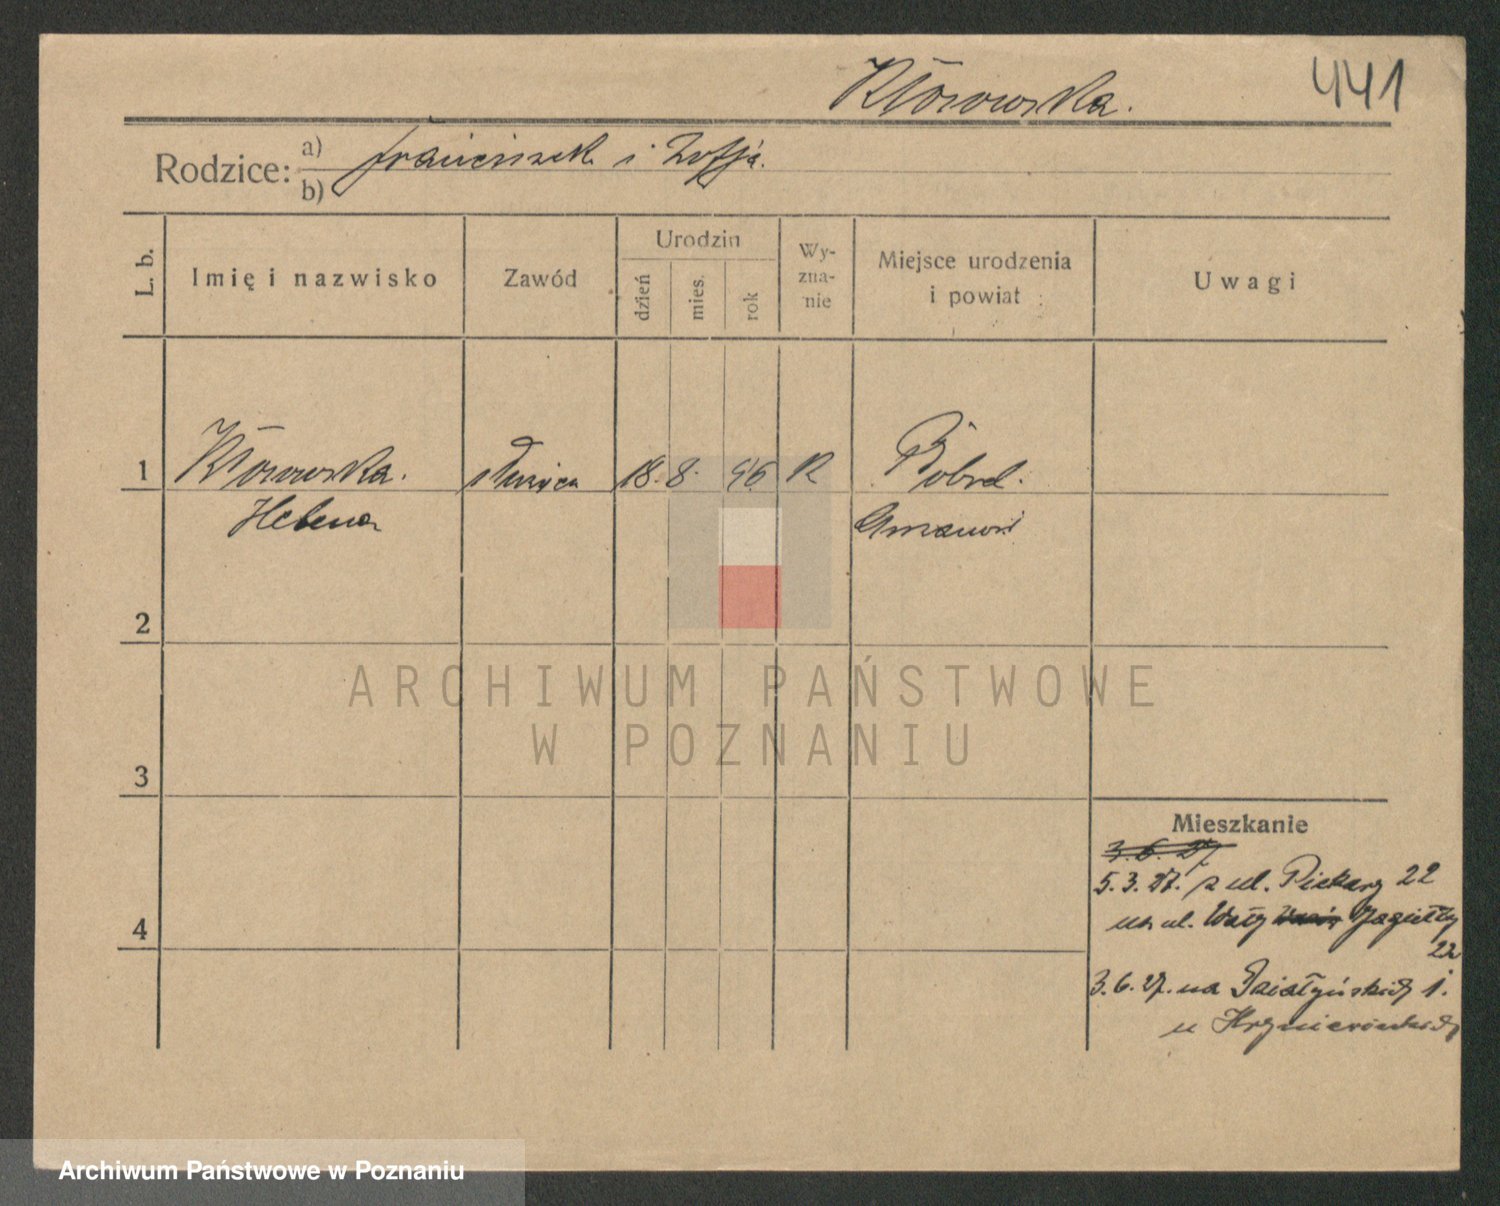 441
Kłosowska.
Rodzice:
a) Franciszek i Zofja.
b)
L. b.
Imię i nazwisko
Zawód
Urodzin
dzień
mies.
rok
Wy-
zna-
nie
Miejsce urodzenia
i powiat
Uwagi
1 Kłosowska. 18. 8. R
Helena
2
3
4
Mieszkanie
3. 6. 27
5. 3. 27. z ul. Piekary 22
na ul. Wały Jagiełły
22
3. 6. 27. na Działyńskich 1.
u
ARCHIWUM PAŃSTWOWE
W POZNANIU
Archiwum Państwowe w Poznaniu